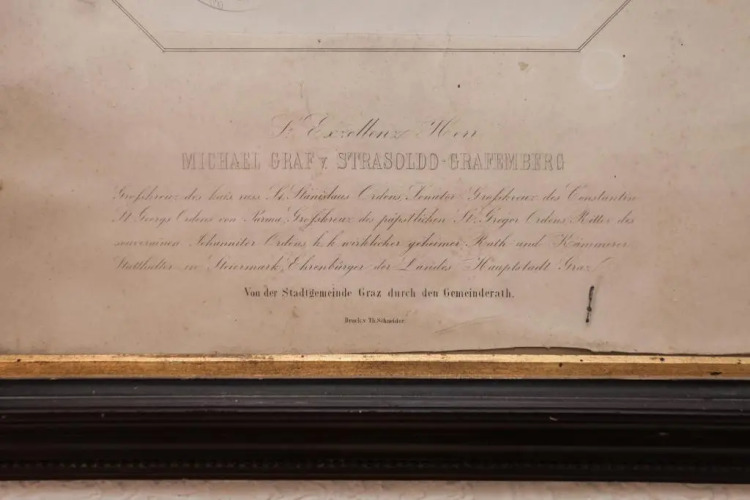 Sr Exzellenz Herr
MICHAEL GRAF v. STRASOLDO-GRAFEMBERG
Großkreuz des kais russ St Stanislaus Ordens, Senator Großkreuz des Constantin
St Georgs Ordens von Parma, Großkreuz des päpstlichen St Gregor Ordens Ritter des
souverainen Johanniter Ordens k. k. wirklicher geheimer Rath und Kämmerer,
Statthalter in Steiermark, Ehrenbürger der Landes Hauptstadt Graz
Von der Stadtgemeinde Graz durch den Gemeinderath.
Druck v Th. Schneider